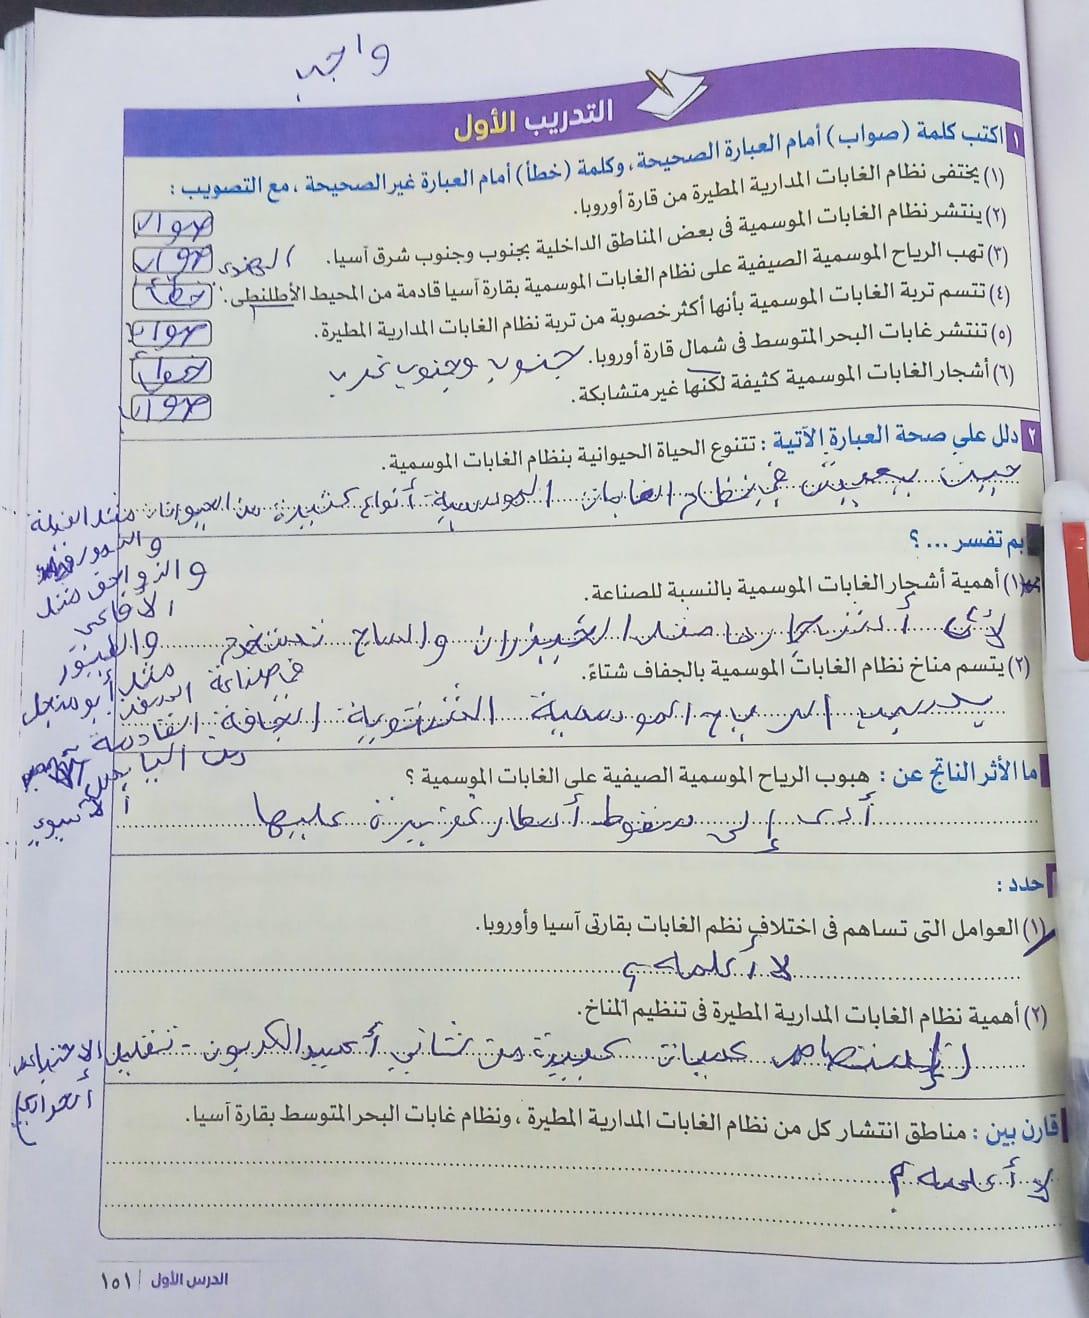 واجب
التدريب الأول
١ اكتب كلمة (صواب) أمام العبارة الصحيحة، وكلمة (خطأ) أمام العبارة غير الصحيحة، مع التصويب :
(١) يختفى نظام الغابات المدارية المطيرة من قارة أوروبا. صواب
(٢) ينتشر نظام الغابات الموسمية فى بعض المناطق الداخلية بجنوب وجنوب شرق آسيا. صواب
الهندى
(٣) تهب الرياح الموسمية الصيفية على نظام الغابات الموسمية بقارة آسيا قادمة من المحيط الأطلنطى. خطأ
(٤) تتسم تربة الغابات الموسمية بأنها أكثر خصوبة من تربة نظام الغابات المدارية المطيرة. صواب
(٥) تنتشر غابات البحر المتوسط فى شمال قارة أوروبا. جنوب وجنوب غرب خطأ
(٦) أشجار الغابات الموسمية كثيفة لكنها غير متشابكة. صواب
٢ دلل على صحة العبارة الآتية : تتنوع الحياة الحيوانية بنظام الغابات الموسمية.
حيث يعيش في نظام الغابات الموسمية أنواع كثيرة من الحيوانات مثل الفيلة
والنمور
والزواحف مثل
الأفاعي
والطيور
مثل أبو منجل
بم تفسر ... ؟
(١) أهمية أشجار الغابات الموسمية بالنسبة للصناعة.
لأن أشجارها مثل الخيزران والساج تستخدم
في صناعة السفن
(٢) يتسم مناخ نظام الغابات الموسمية بالجفاف شتاءً.
بسبب الرياح الموسمية الشتوية الجافة القادمة
من اليابس
الآسيوي
ما الأثر الناتج عن : هبوب الرياح الموسمية الصيفية على الغابات الموسمية ؟
أدى إلى سقوط أمطار غزيرة عليها
حدد :
(١) العوامل التى تساهم فى اختلاف نظم الغابات بقارتى آسيا وأوروبا.
لا أعلمه
(٢) أهمية نظام الغابات المدارية المطيرة فى تنظيم المناخ.
إمتصاص كميات كبيرة من ثاني أكسيد الكربون - تقليل الإحتباس
الحراري
قارن بين : مناطق انتشار كل من نظام الغابات المدارية المطيرة، ونظام غابات البحر المتوسط بقارة آسيا.
لا أعلمه
الدرس الأول | ١٥١